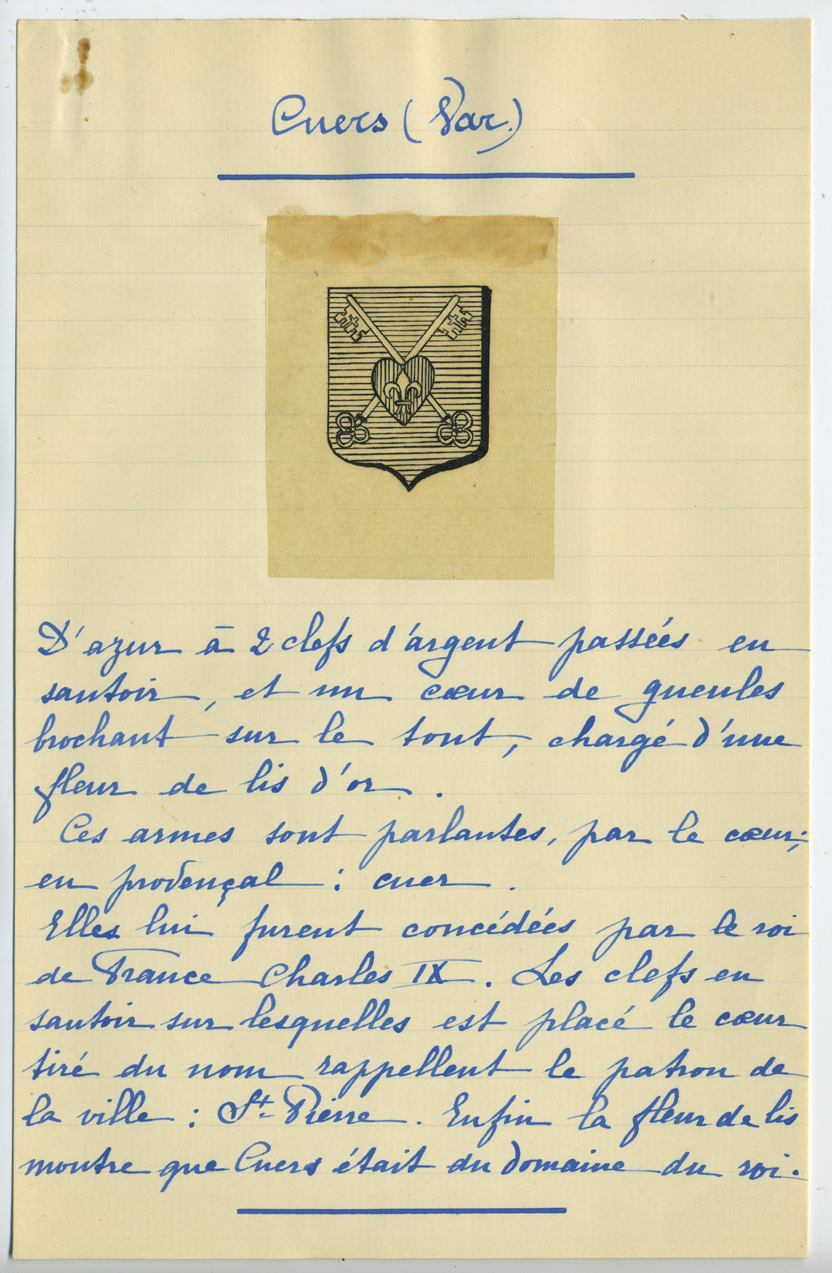 Cuers (Var.)
D'azur à 2 clefs d'argent passées en
sautoir, et un cœur de gueules
brochant sur le tout, chargé d'une
fleur de lis d'or.
Ces armes sont parlantes, par le cœur;
en provençal : cuer.
Elles lui furent concédées par le roi
de France Charles IX. Les clefs en
sautoir sur lesquelles est placé le cœur
tiré du nom rappellent le patron de
la ville : St. Pierre. Enfin la fleur de lis
montre que Cuers était du domaine du roi.